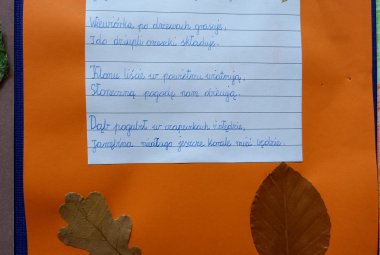 Wiewiórka po drzewach grasuje,
I do dziupli orzeszki składuje.
Klonu liście w powietrzu wiatrują,
Słoneczną pogodę nam
Dąb pogubił w czapeczkach żołędzie,
Jarzębina niedługo jeszcze korale mieć będzie.